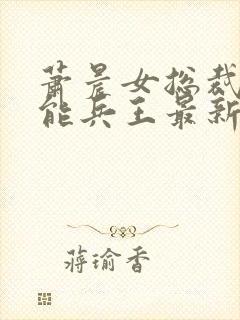 萧晨女总裁
能兵王最新
蒋瑜香